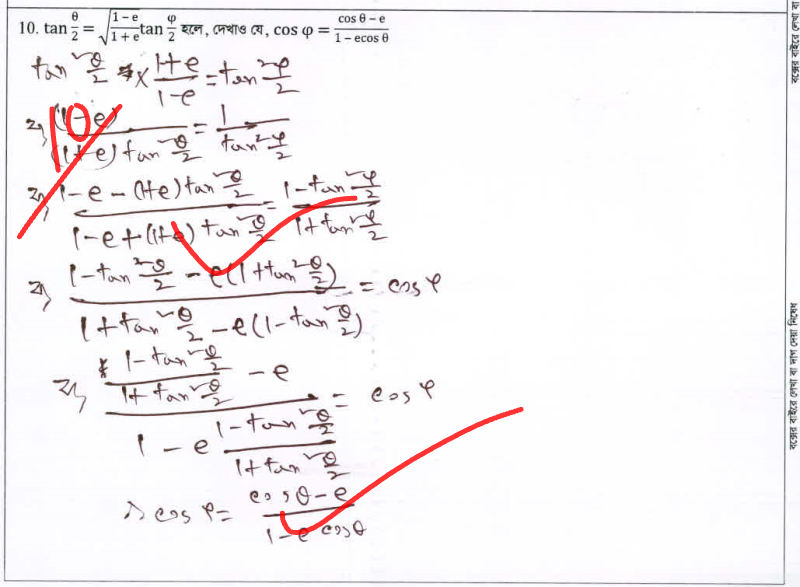 10. tan θ/2 = √((1−e)/(1+e)) tan φ/2 হলে, দেখাও যে, cos φ = (cos θ−e)/(1−ecos θ)
tan²θ/2 × (1+e)/(1−e) = tan²φ/2
10
বা, (1−e)/((1+e) tan²θ/2) = 1/(tan²φ/2)
বা, (1−e−(1+e) tan²θ/2)/(1−e+(1+e) tan²θ/2) = (1−tan²φ/2)/(1+tan²φ/2)
বা, (1−tan²θ/2 − e(1+tan²θ/2))/(1+tan²θ/2 − e(1−tan²θ/2)) = cos φ
বা, ((1−tan²θ/2)/(1+tan²θ/2) − e)/(1 − e (1−tan²θ/2)/(1+tan²θ/2)) = cos φ
∴ cos φ = (cos θ − e)/(1−e cos θ)
বক্সের বাইরে লেখা বা দাগ দেয়া নিষেধ
বক্সের বাইরে লেখা বা